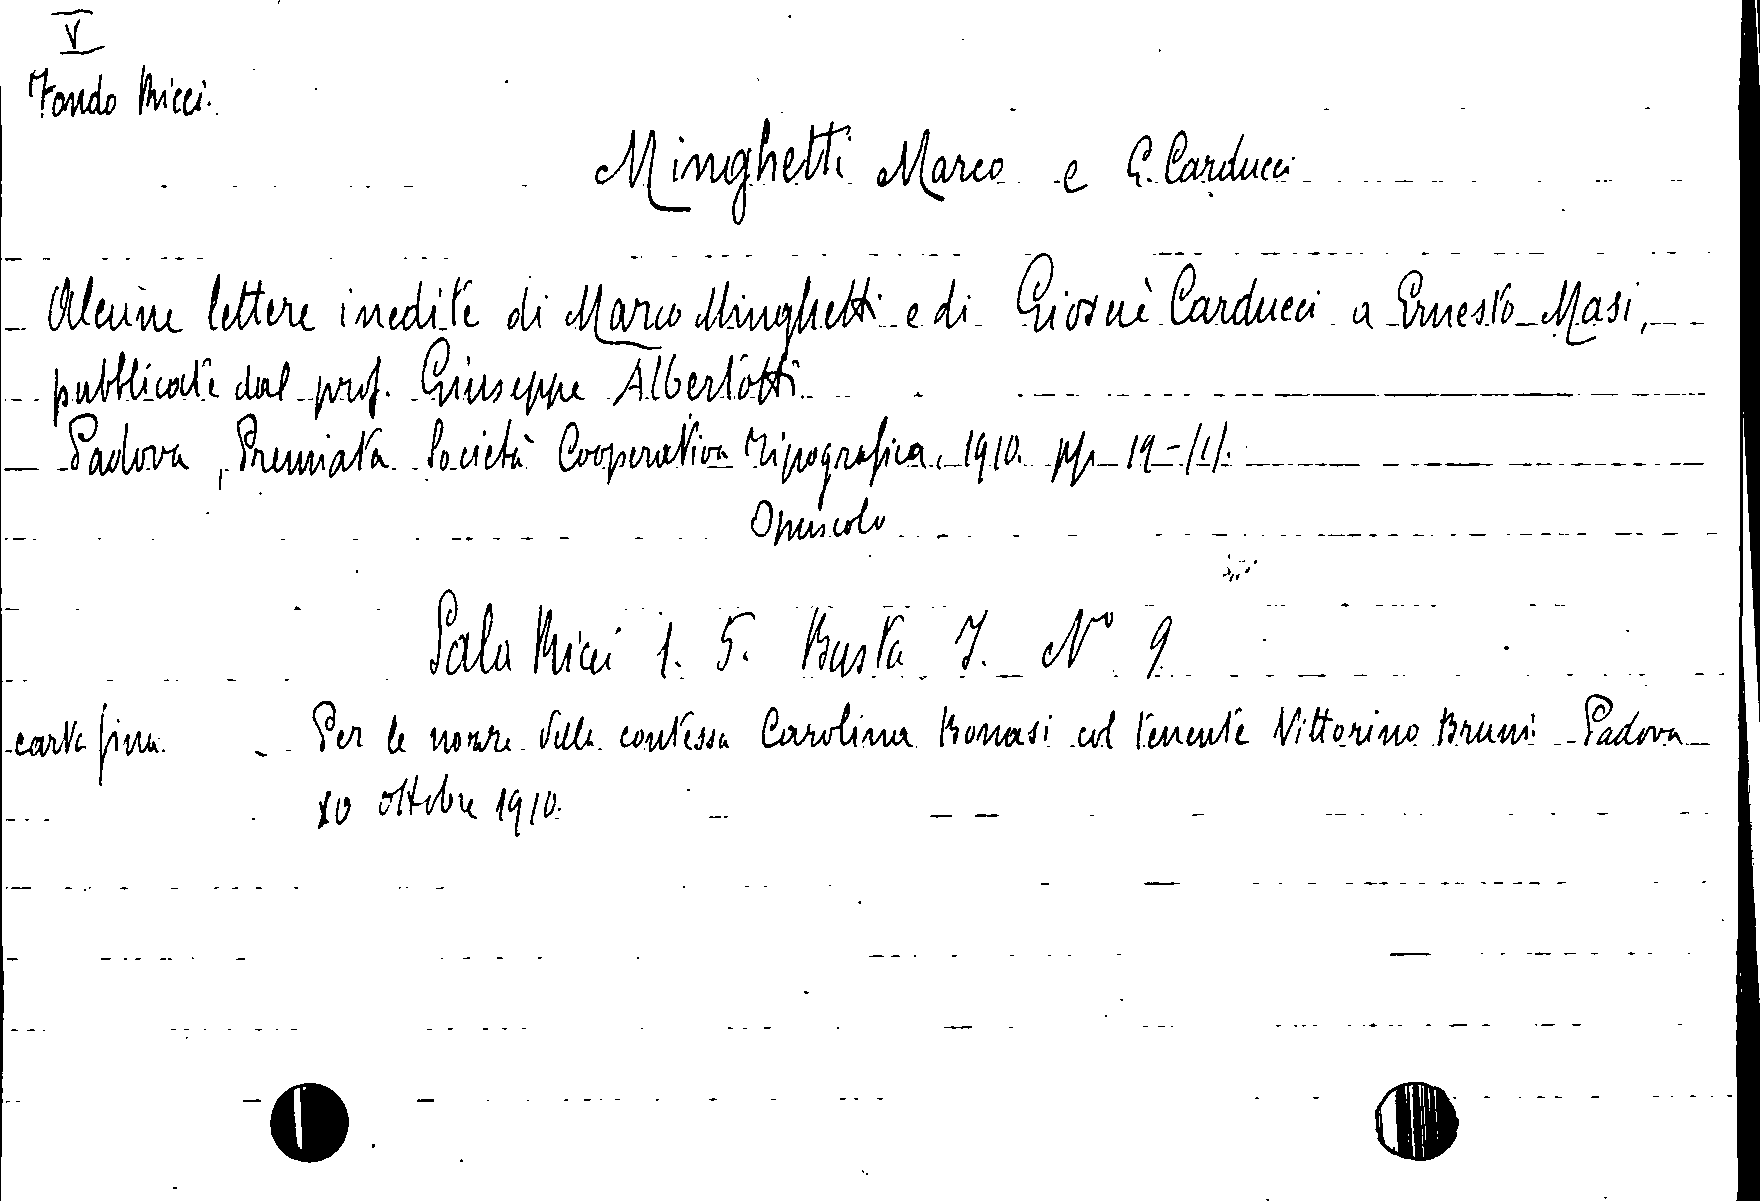 V
Fondo Ricci.
Minghetti Marco e G. Carducci
Alcune lettere inedite di Marco Minghetti e di Giosuè Carducci a Ernesto Masi,
pubblicate dal prof. Giuseppe Albertotti
Padova, Premiata Società Cooperativa Tipografica, 1910. pp 19-/1/.
Opuscolo
Sala Ricci 1. 5. Busta I. N° 9
carta fina. Per le nozze della contessa Carolina Bonasi col tenente Vittorino Bruni Padova
10 ottobre 1910.